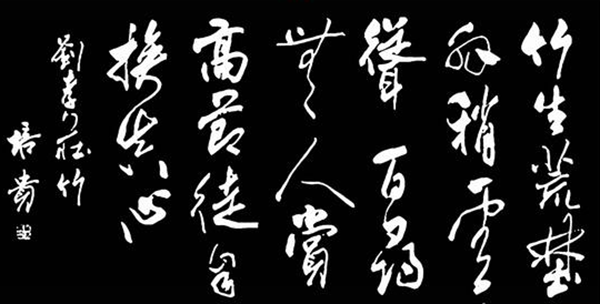 竹生荒埜
外稍雲
聳百尋
無人賞
高節徒自
抱貞心
劉孝先詠竹
培貴